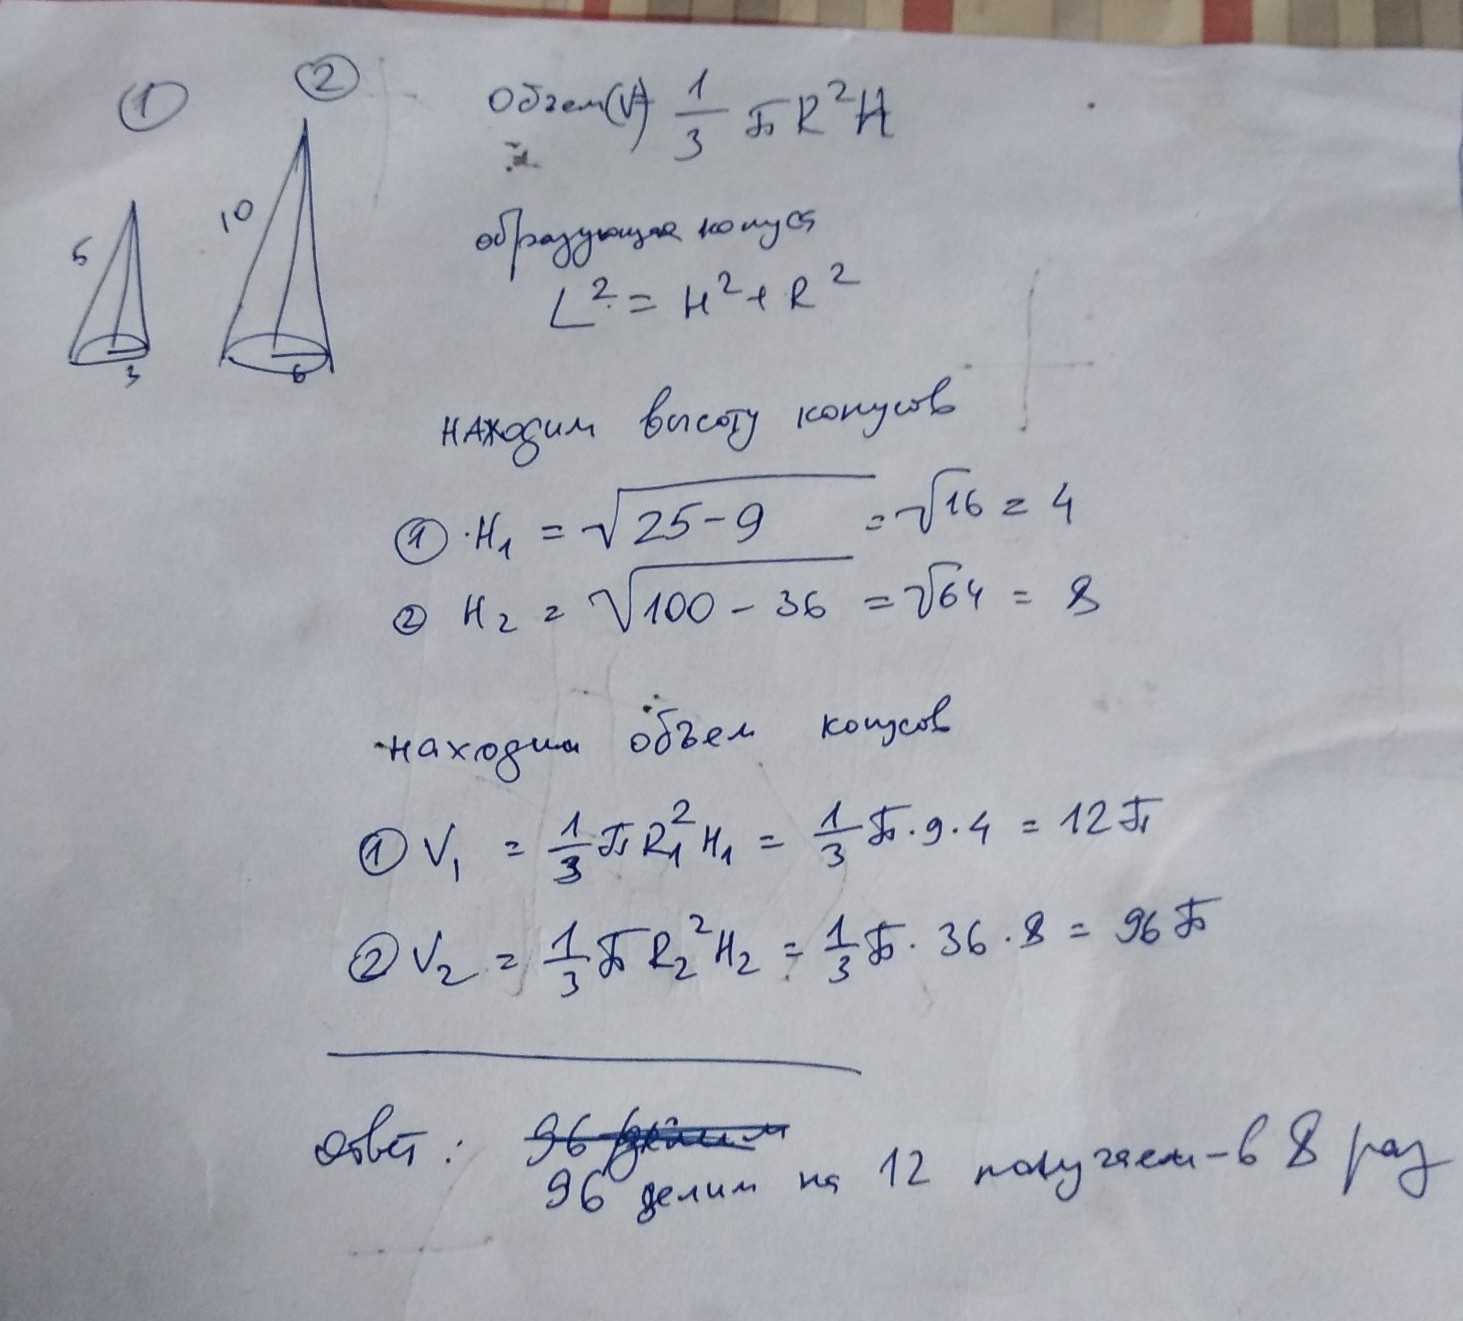 ① ②
Объем(V) = 1/3 π R²H
5 10
3 6
образующая конуса
L² = H² + R²
находим высоту конусов
① H₁ = √25-9 = √16 = 4
② H₂ = √100 - 36 = √64 = 8
находим объем конусов
① V₁ = 1/3 π R₁² H₁ = 1/3 π · 9 · 4 = 12 π
② V₂ = 1/3 π R₂² H₂ = 1/3 π · 36 · 8 = 96 π
ответ: 96 делим
96 делим на 12 получаем - в 8 раз